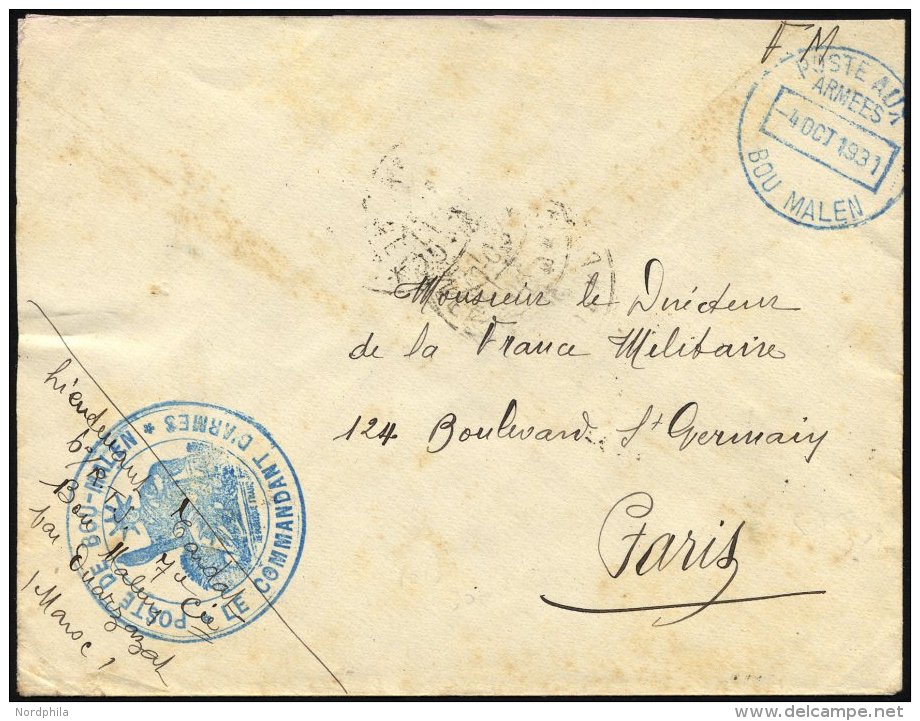 F M
POSTE AUX
ARMEES
-4 OCT 1931
BOU MALEN
Monsieur le Directeur
de la France Militaire
124 Boulevard St Germain
Paris
Lieutenant
7e Cie
Bou Malen
par Ouarzazat
(Maroc)
POSTE DE BOU-MALEN
LE COMMANDANT D'ARMES
Nordphila
www.delcampe.net